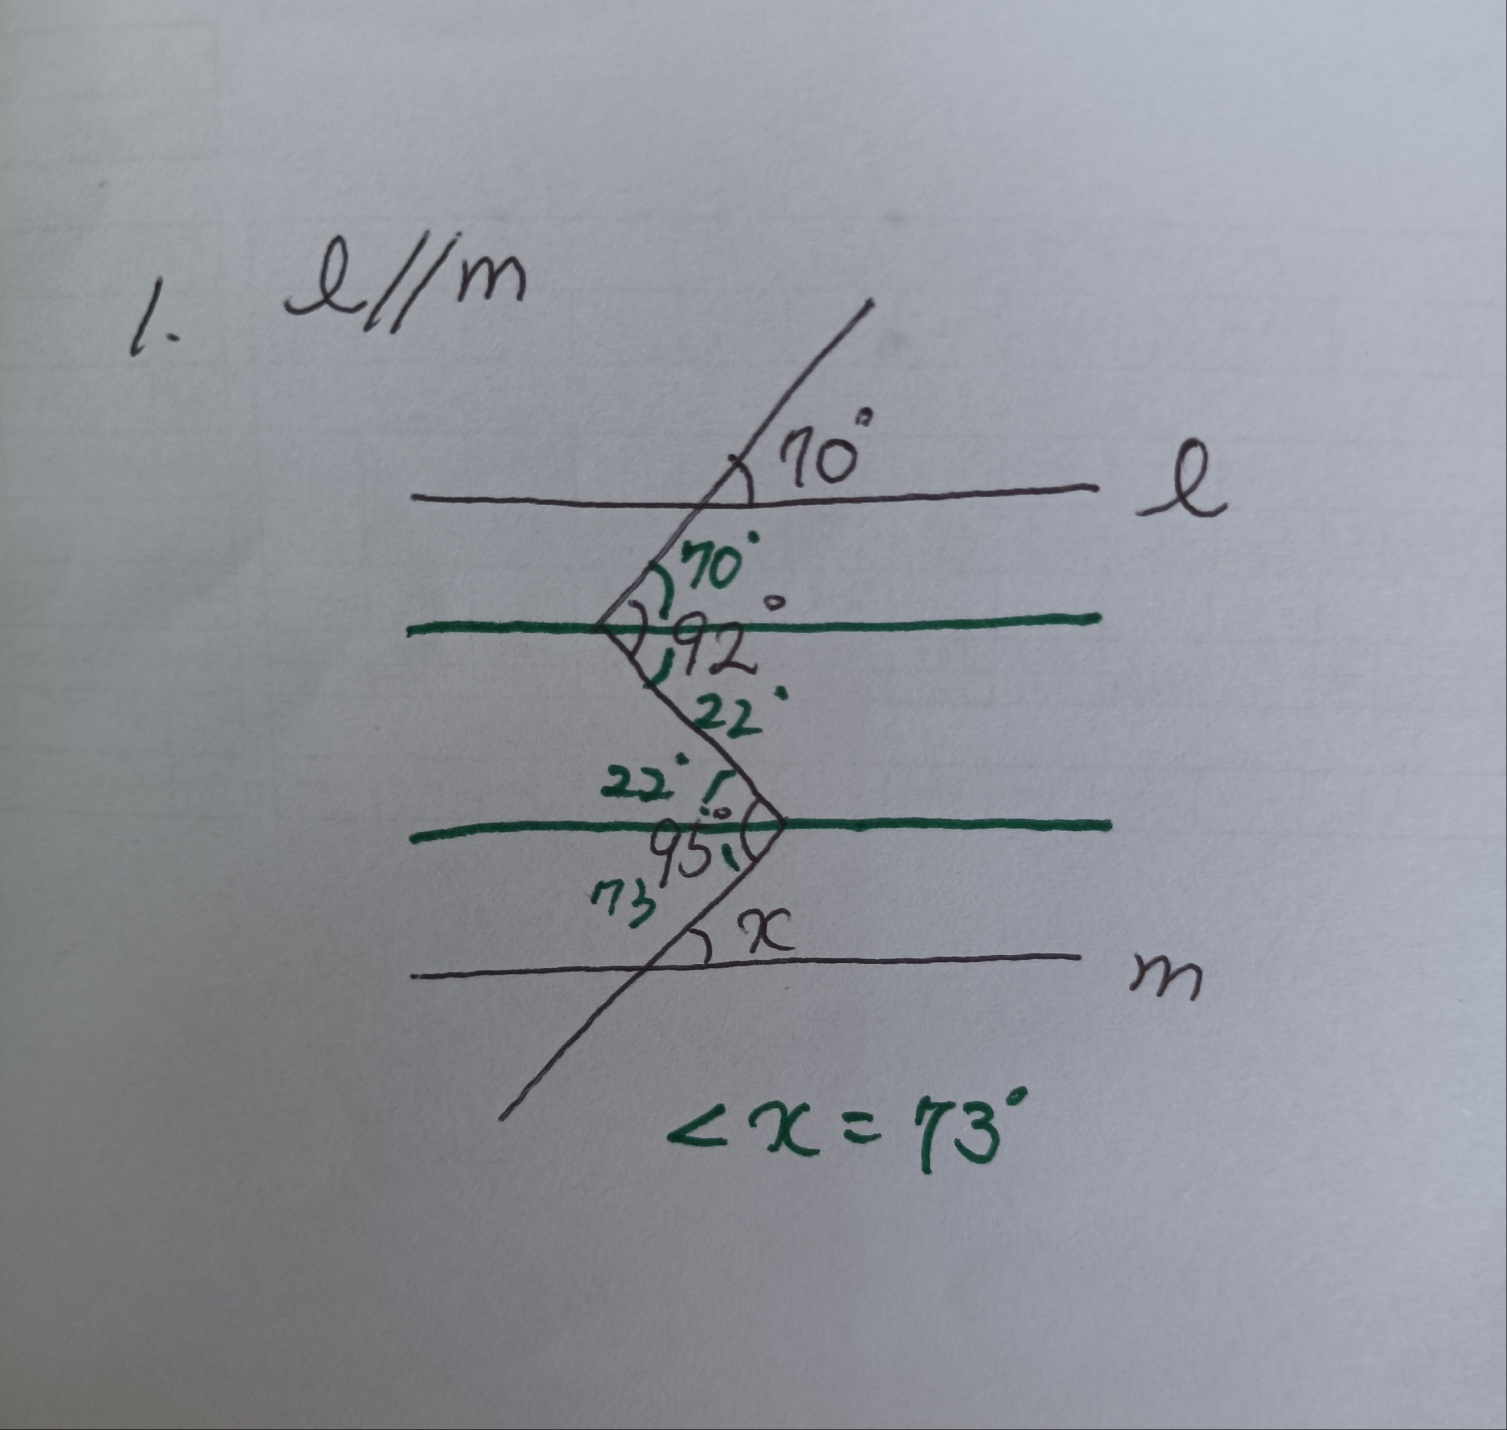 1. l//m
70°
l
70°
92°
22°
22°
95°
73
x
m
<x=73°